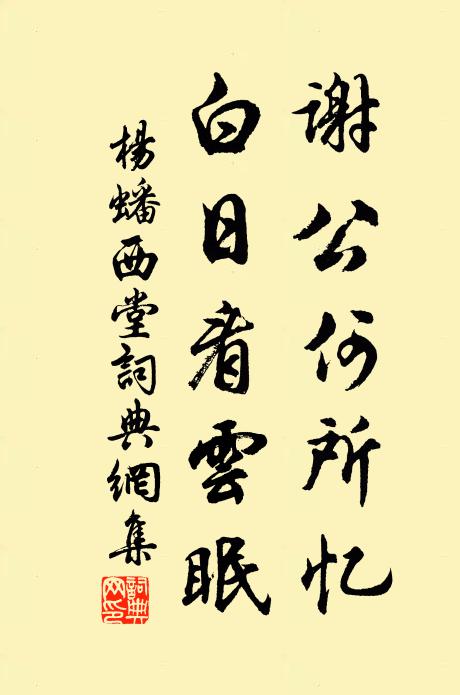 谢公何所忆
白日看雲眠
楊蟠西堂詞典網集
詞典網印